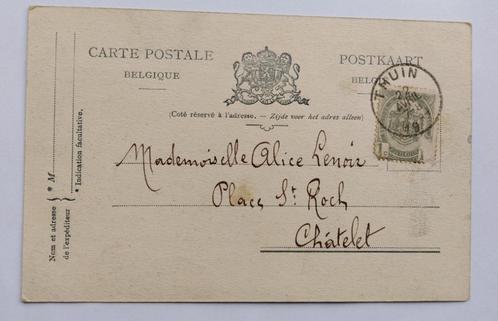 CARTE POSTALE
BELGIQUE
POSTKAART
(Coté réservé à l'adresse. — Zijde voor het adres alleen)
THUIN
Mademoiselle Alice Lenoir
Place St Roch
Châtelet
Nom et adresse
de l'expéditeur
* M
* Indication facultative.